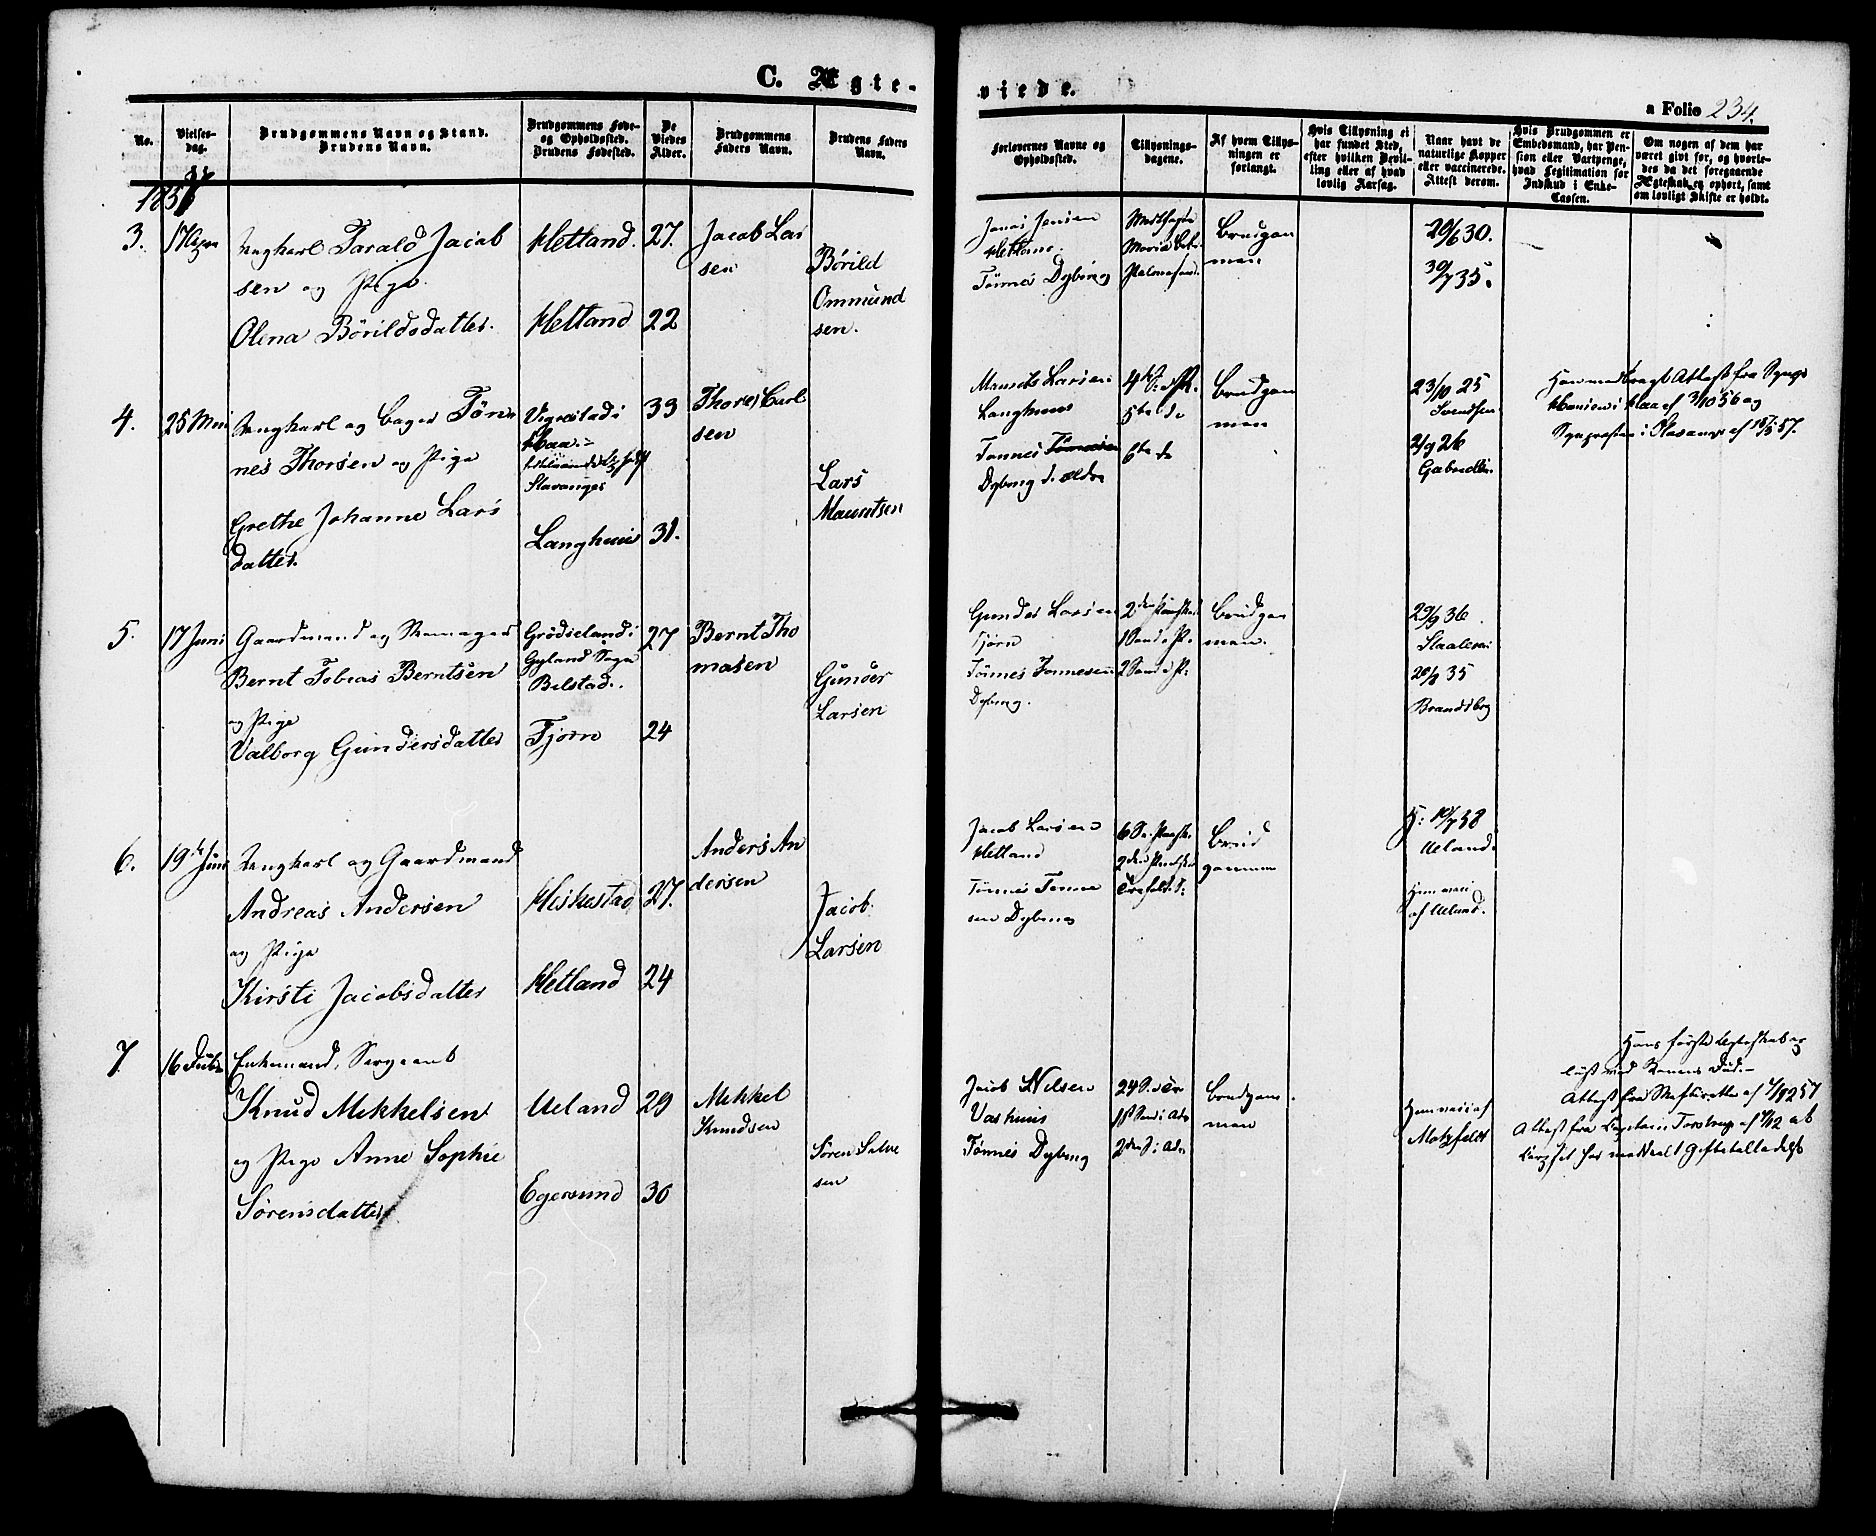 C. Ægte-
viede.
a Folio 234,
No.
Vielses-
dag.
Brudgommens Navn og Stand.
Brudens Navn.
Brudgommens Føde-
og Opholdssted.
Brudens Fødested.
De
Viedes
Alder.
Brudgommens
Faders Navn.
Brudens Faders
Navn.
Forlovernes Navne og
Opholdssted.
Tillysnings-
dagene.
Af hvem Tillys-
ningen er
forlangt.
Hvis Tillysning ei
har fundet Sted,
efter hvilken Bevil-
ling eller af hvad
lovlig Aarsag.
Naar havt de
naturlige Kopper
eller vaccinerede.
Attest derom.
Hvis Brudgommen er
Embedsmand, har Pen-
sion eller Vartpenge,
hvad Legitimation for
Indskud i Enke-
Cassen.
Om nogen af dem har
været givt før, og hvorle-
des da det foregaaende
Ægteskab er ophørt, samt
om lovligt Skifte er holdt.
1857
3.
Ungkarl Tarald Jacob
sen og Pige
Olena Börildsdatter.
Hetland. 27.
Hetland 22
Jacob Lar
sen
Börild
Ommund
sen.
Jonas Jensen
Hetland.
Tönnes Dybing
Maria
Palmesønd.
Brudgom
men
29/6 30.
30/7 35.
4. 25 Mai
Ungkarl og Bager Tön
nes Thorsen og Pige
Grethe Johanne Lars
datter.
Vigrestad i
Haa.
Stavanger
Langhuus
33
31.
Thores Carl
sen
Lars
Mauritsen
Maurits Larsen
Langhuus
Tönnes Tönnesen
Dybing d. ældre
4de S. e. P.
5te do
6te do
Brudgom
men
23/10 25
Svendsen
2/9 26
Gabrielsen
Han medbragt Attest fra Sogne
i Haa af 3/10 56 og
Sognepresten i Stavanger af 18/5 57.
5. 17 Juni
Gaardmand og
Bernt Tobias Berntsen
og Pige
Valborg Gundersdatter
Grödseland i
Gyland Sogn
Belstad.
Fjörn
27
24
Bernt Tho
masen
Gunder
Larsen
Gunder Larsen
Fjörn
Tönnes Tönnesen
Dybing.
2den
1 Sönd. e P.
2 Sönd. e P.
Brudgom
men.
29/9 36
Staalesen
20/9 35
Brandsberg
6. 19de Juni
Ungkarl og Gaardmand
Andreas Andersen
og Pige
Kirsti Jacobsdatter
Heskestad
Hetland
27.
24
Anders An
dersen
Jacob
Larsen
Jacob Larsen
Hetland
Tönnes Tönne
sen Dybing
6 S. e. Paaske.
2den Pintsedag
Brud
gommen
H: 10/7 58
Ueland.
Hun vacc.
af Ueland.
7. 16
Enkemand, Sergeant
Knud Mekkelsen
og Pige Anne Sophie
Sörensdatter
Ueland
Egersund
29
30
Mekkel
Knudsen
Sören Salve
sen
Jacob Nilsen
Vashuus
Tönnes Dybing
24 S. e Tr
1st Sönd i Adv
2den S. i Adv
Brudgom
men
Hun vacc: af
Motzfeldt
Hans første Ægteskab op
løst ved Konens Död.
Attest fra Skifteretten af
Attest fra Capitain Torstrup af at
Corpset har meddeelt Giftetilladelse